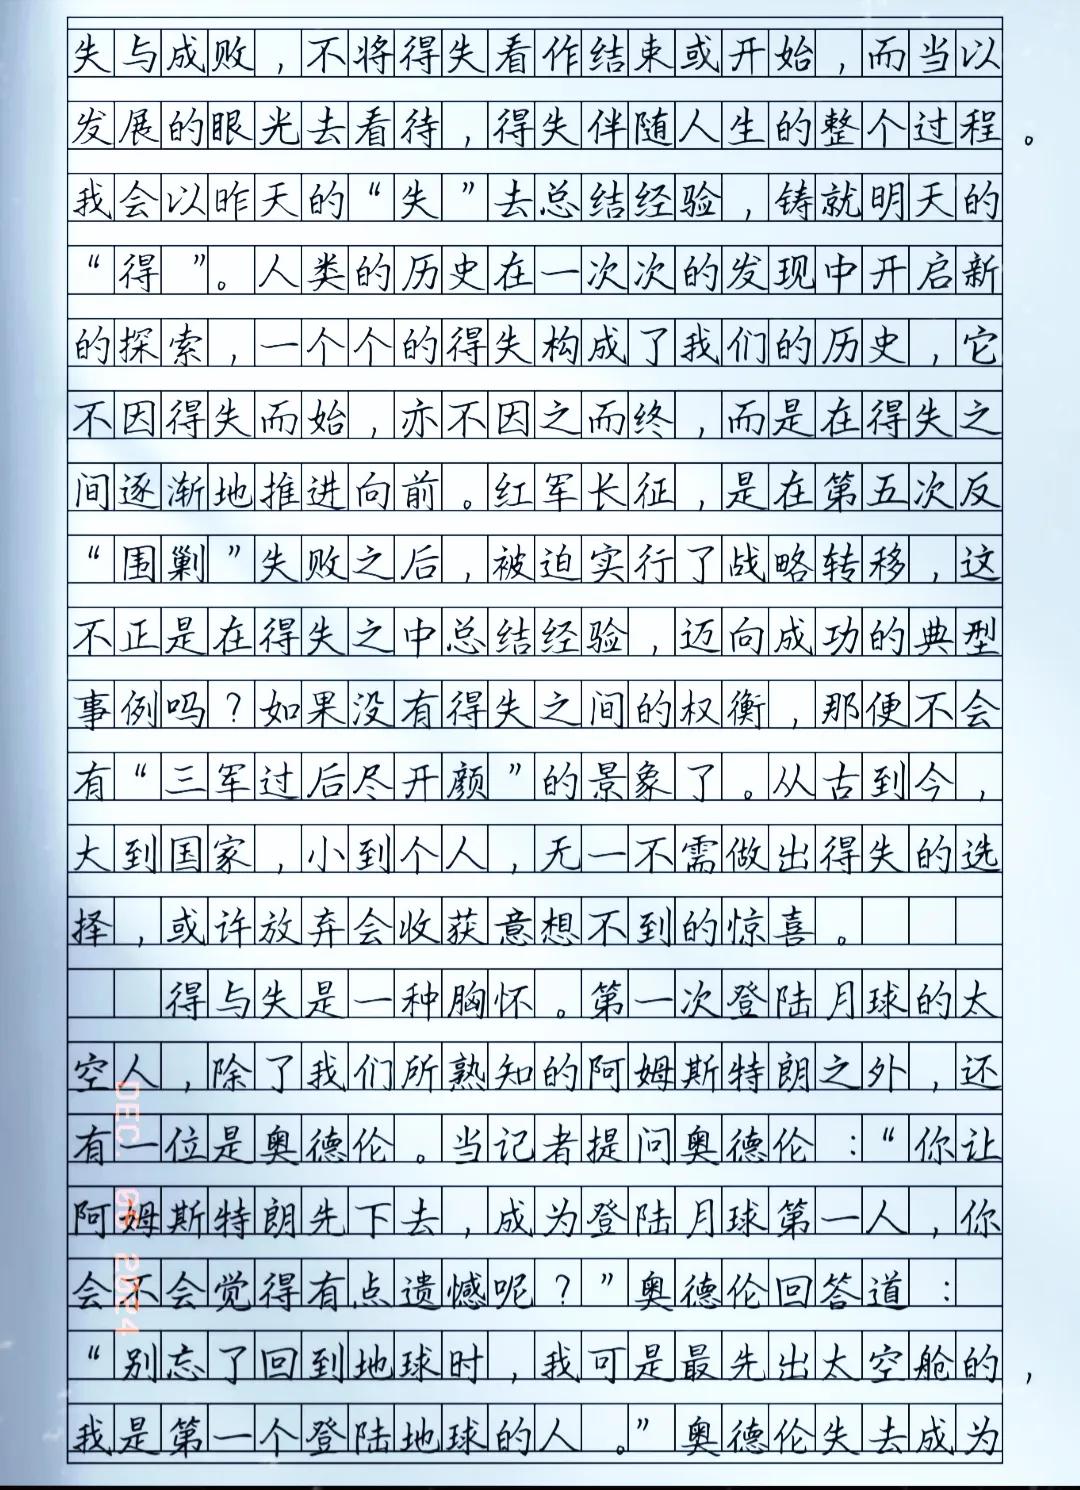 失与成败，不将得失看作结束或开始，而当以
发展的眼光去看待，得失伴随人生的整个过程。
我会以昨天的“失”去总结经验，铸就明天的
“得”。人类的历史在一次次的发现中开启新
的探索，一个个的得失构成了我们的历史，它
不因得失而始，亦不因之而终，而是在得失之
间逐渐地推进向前。红军长征，是在第五次反
“围剿”失败之后，被迫实行了战略转移，这
不正是在得失之中总结经验，迈向成功的典型
事例吗？如果没有得失之间的权衡，那便不会
有“三军过后尽开颜”的景象了。从古到今，
大到国家，小到个人，无一不需做出得失的选
择，或许放弃会收获意想不到的惊喜。
得与失是一种胸怀。第一次登陆月球的太
空人，除了我们所熟知的阿姆斯特朗之外，还
有一位是奥德伦。当记者提问奥德伦：“你让
阿姆斯特朗先下去，成为登陆月球第一人，你
会不会觉得有点遗憾呢？”奥德伦回答道：
“别忘了回到地球时，我可是最先出太空舱的，
我是第一个登陆地球的人。”奥德伦失去成为